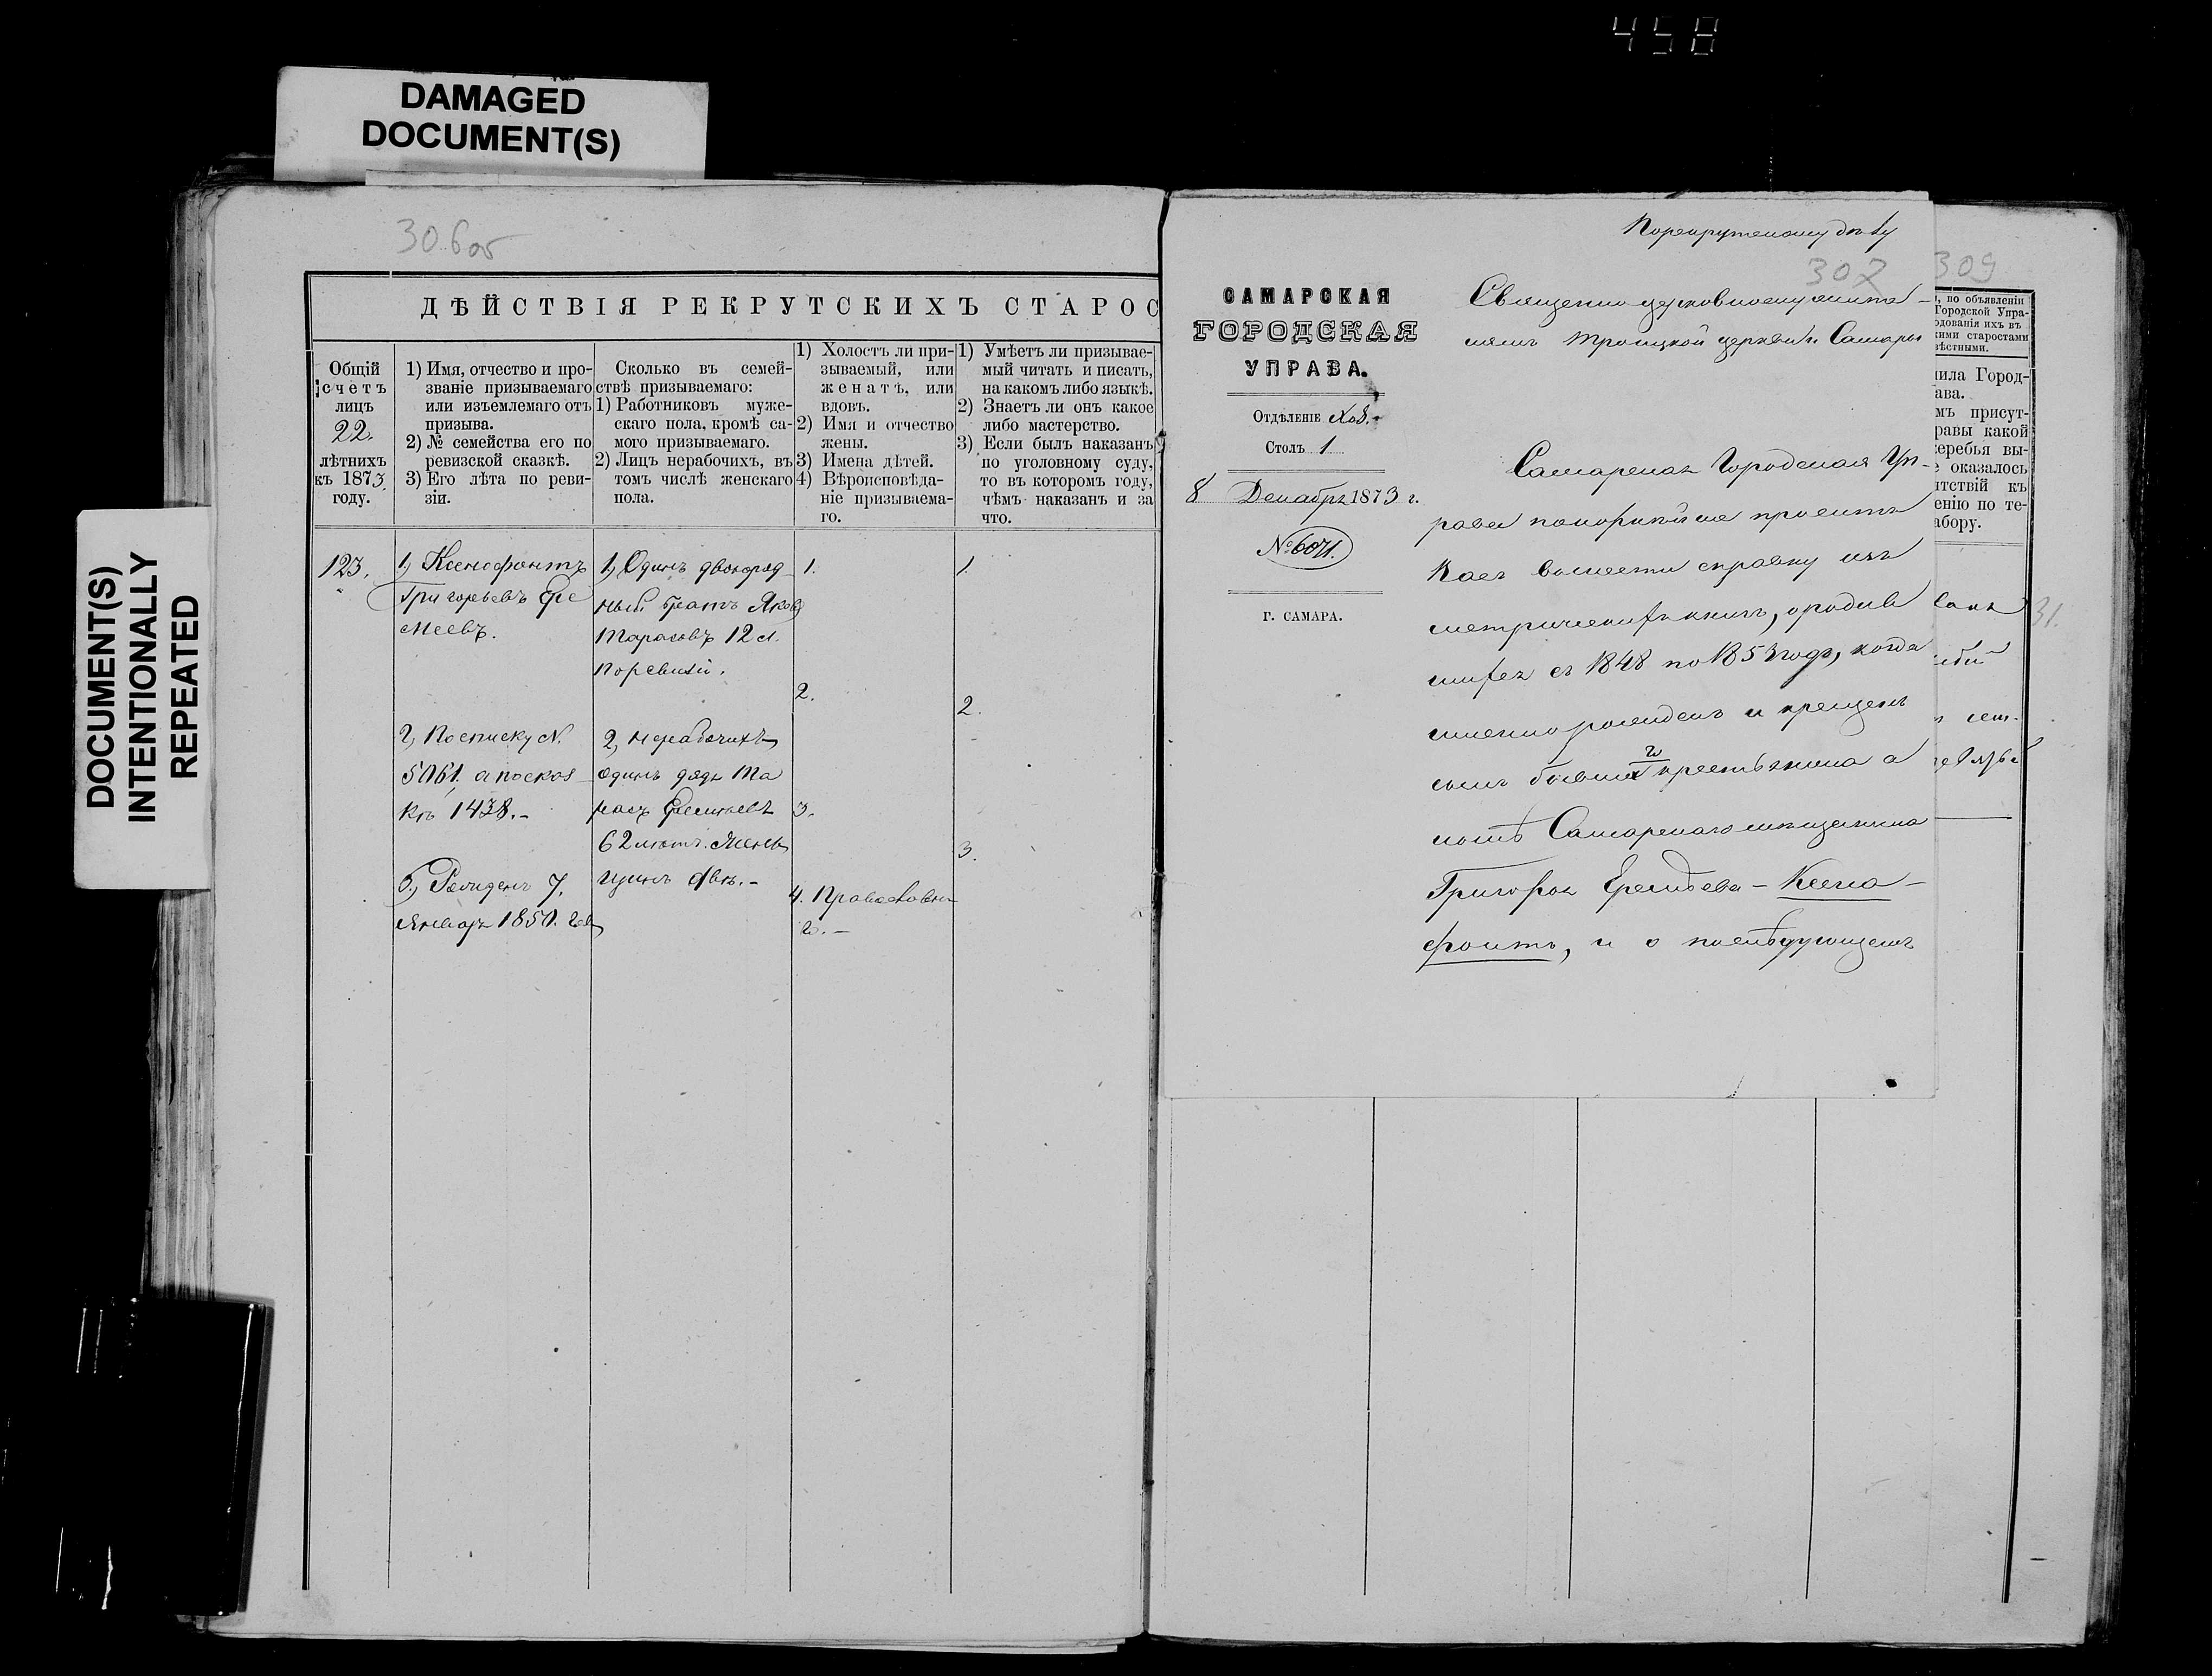 458
DAMAGED
DOCUMENT(S)
DOCUMENT(S)
INTENTIONALLY
REPEATED
306 об
ДѢЙСТВІЯ РЕКРУТСКИХЪ СТАРОС
Общій
счетъ
лицъ
22.
лѣтнихъ
къ 1873
году.
1) Имя, отчество и про-
званіе призываемаго
или изъемлемаго отъ
призыва.
2) № семейства его по
ревизской сказкѣ.
3) Его лѣта по реви-
зіи.
Сколько въ семей-
ствѣ призываемаго:
1) Работниковъ муже-
скаго пола, кромѣ са-
мого призываемаго.
2) Лицъ нерабочихъ, въ
томъ числѣ женскаго
пола.
1) Холостъ ли при-
зываемый, или
женатъ, или
вдовъ.
2) Имя и отчество
жены.
3) Имена дѣтей.
4) Вѣроисповѣда-
ніе призываема-
го.
1) Умѣетъ ли призывае-
мый читать и писать,
на какомъ либо языкѣ.
2) Знаетъ ли онъ какое
либо мастерство.
3) Если былъ наказанъ
по уголовному суду,
то въ которомъ году,
чѣмъ наказанъ и за
что.
123.
1, Ксенофонтъ
Григорьевъ Ере
меевъ.
2, По списку N.
5061, а по сказ
кѣ 1438.-
3, Рожденъ 7.
Января 1851. год
1, Одинъ двоюрод-
ный братъ Яковъ
Тарасовъ 12 л.
по ревизіи.
2, нерабочихъ
одинъ дядя Та
расъ Еремѣевъ
62 лѣтъ. Жен
щинъ двѣ.-
1.
2.
3.
4. Православна
го.-
1.
2.
3.
По рекрутскому дѣлу
302
САМАРСКАЯ
ГОРОДСКАЯ
УПРАВА.
Отдѣленіе Хоз.-
Столъ 1
8 Декабря 1873 г.
№ 6071.
Г. САМАРА.
Священно церковнослужите-
лямъ Троицкой церкви г. Самары
Самарская Городская Уп-
рава покорнѣйше проситъ
Васъ вывести справку изъ
метрическихъ книгъ, о родив
шихся съ 1848 по 1853 годъ, когда
именно рожденъ и крещенъ
сынъ бывшаго крестьянина а
нынѣ Самарскаго мѣщанина
Григорья Еремѣева - Ксено-
фонтъ, и о послѣдующемъ
309
, по объявленіи
Городской Упра-
одованія ихъ въ
кими старостами
вѣстными.
ила Город-
ава.
мъ присут-
равы какой
еребья вы-
е оказалось
тствій къ
енію по те-
абору.
31.